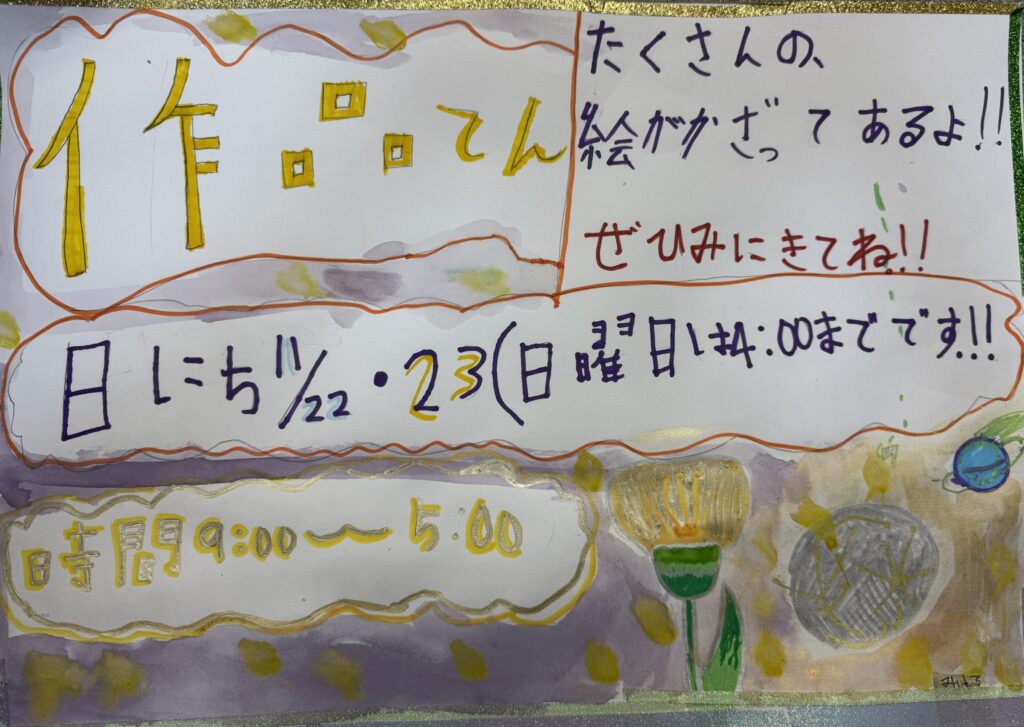 作品てん
たくさんの、
絵がかざってあるよ!!
ぜひみにきてね!!
日にち11/22・23(日曜日は4:00までです!!
時間9:00〜5:00